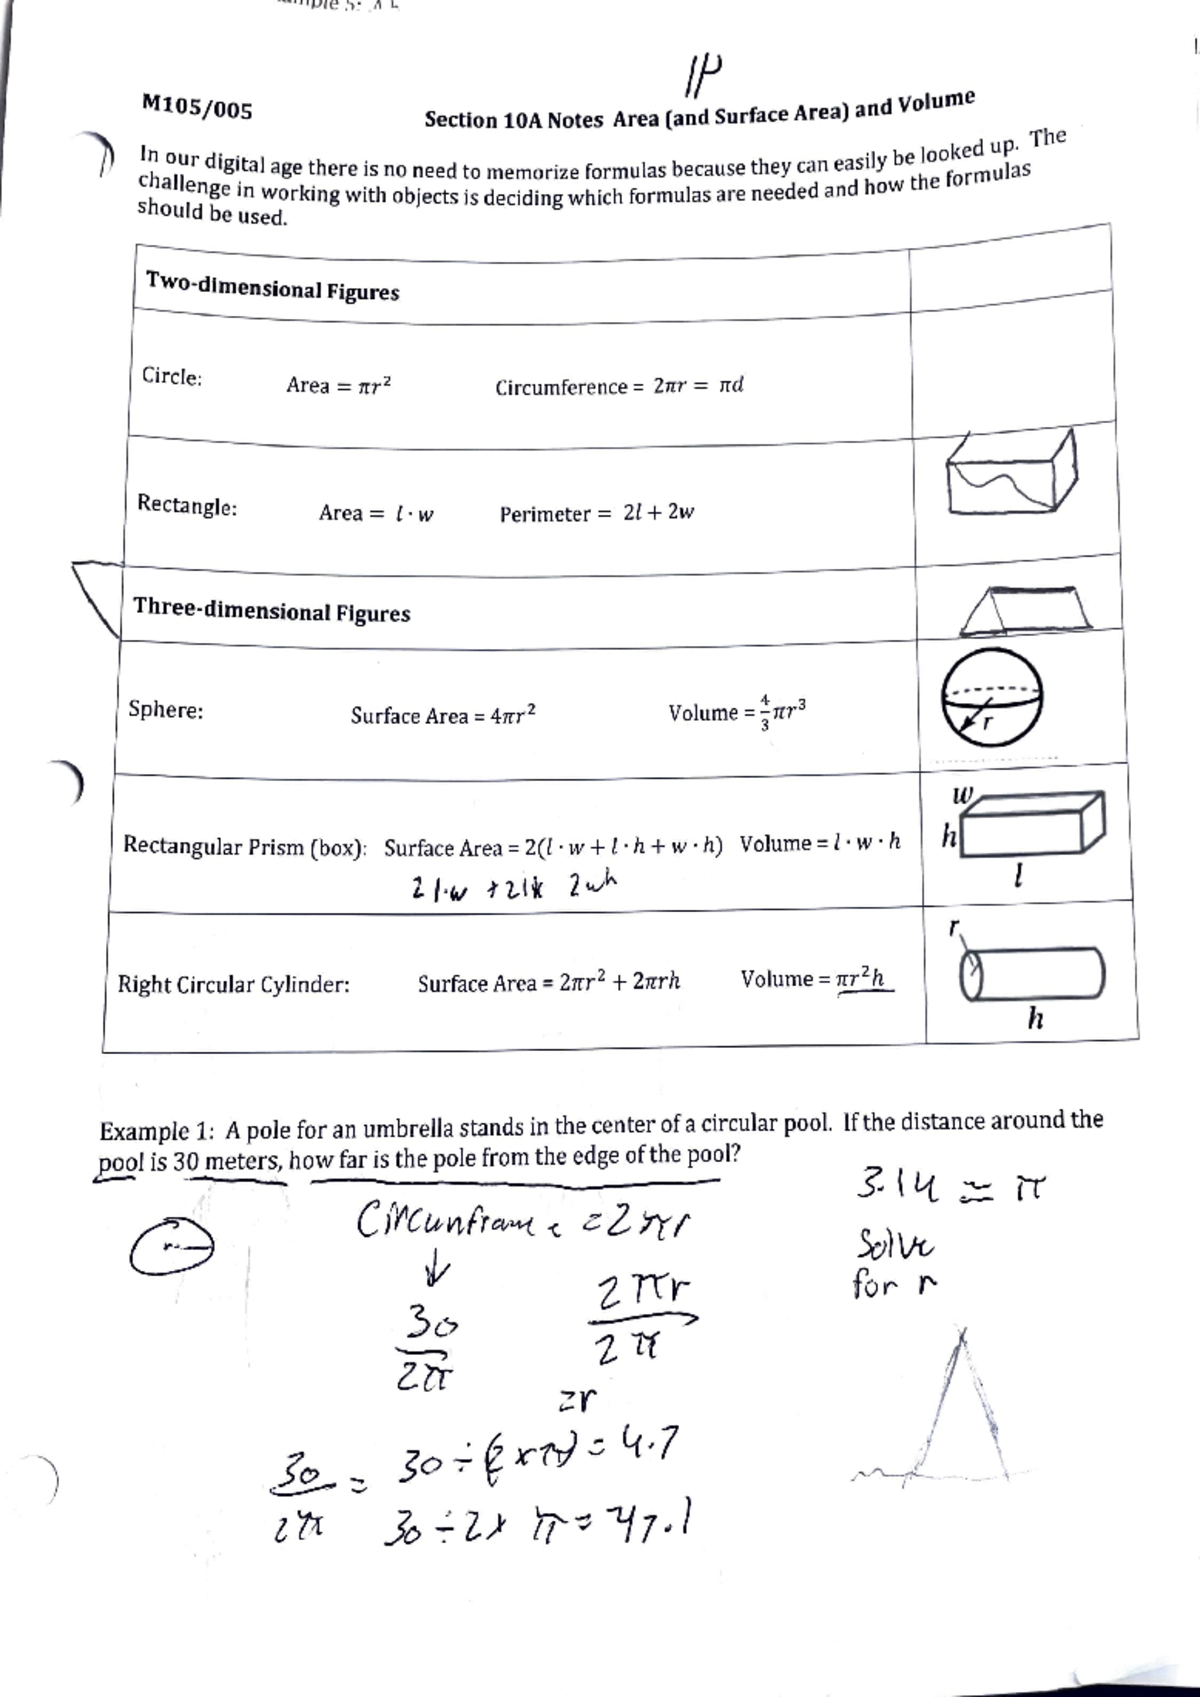 1P
M105/005
Section 10A Notes Area (and Surface Area) and Volume
In our digital age there is no need to memorize formulas because they can easily be looked up. The
challenge in working with objects is deciding which formulas are needed and how the formulas
should be used.
Two-dimensional Figures
Circle: Area = πr² Circumference = 2πr = πd
Rectangle: Area = l · w Perimeter = 2l + 2w
Three-dimensional Figures
Sphere: Surface Area = 4πr² Volume = 4/3 πr³
r
Rectangular Prism (box): Surface Area = 2(l · w + l · h + w · h) Volume = l · w · h
2 l·w + 2lh 2wh
w
h
l
Right Circular Cylinder: Surface Area = 2πr² + 2πrh Volume = πr²h
r
h
Example 1: A pole for an umbrella stands in the center of a circular pool. If the distance around the
pool is 30 meters, how far is the pole from the edge of the pool?
3.14 ≈ π
= 2πr
Solve
for r
r
30/2π 2πr/2π
=r
30/2π = 30 ÷ (2 × π) = 4.7
30 ÷ 2 × π = 47.1